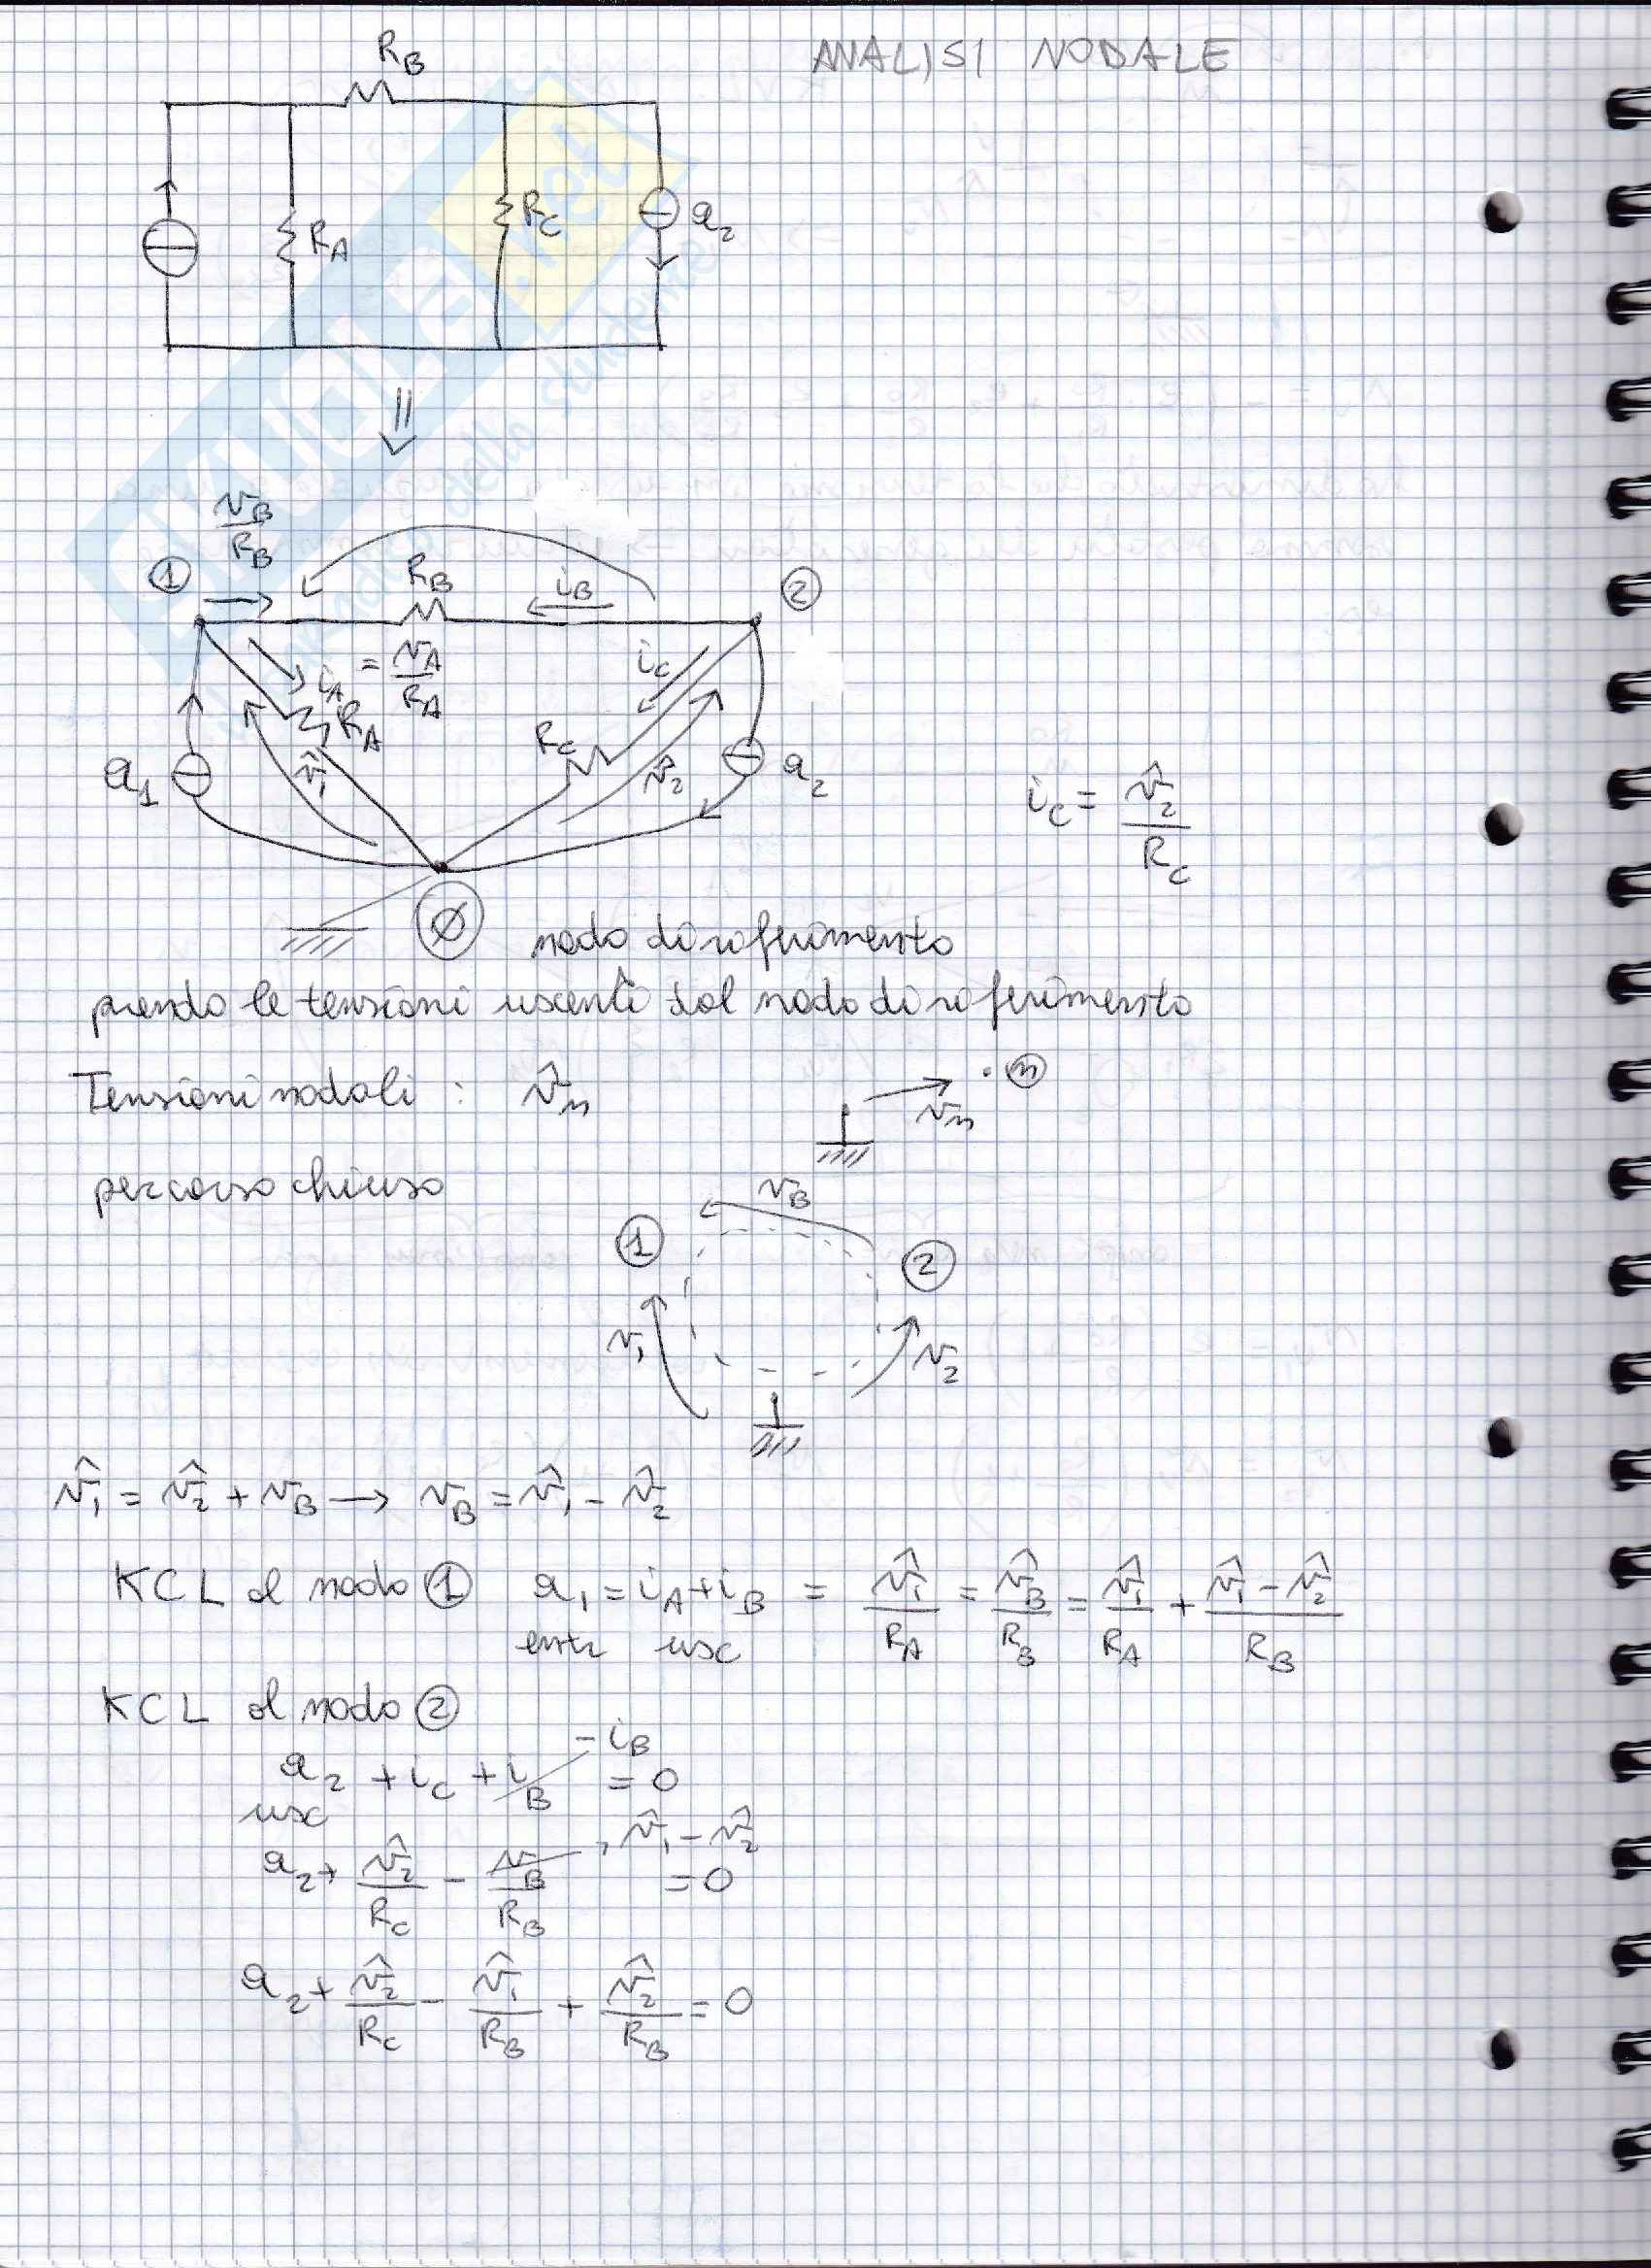 ANALISI NODALE
R_B
R_A
R_C
a_2
SKUOLA.net
v_B/R_B
① R_B i_B ②
i_A = v_A/R_A
i_C
R_A
R_C
a_1
v̂_1
v̂_2
a_2
i_C = v̂_2/R_C
Ø nodo di riferimento
prendo le tensioni uscenti dal nodo di riferimento
Tensioni nodali : v̂_n
· ⓝ
v_n
percorso chiuso
v_B
① ②
v_1 v_2
v̂_1 = v̂_2 + v_B → v_B = v̂_1 - v̂_2
KCL al nodo ① a_1 = i_A + i_B = v̂_1/R_A = v̂_B/R_B = v̂_1/R_A + (v̂_1 - v̂_2)/R_B
entr usc
KCL al nodo ②
- i_B
a_2 + i_C + i_B = 0
usc
v̂_1 - v̂_2
a_2 + v̂_2/R_C - v_B/R_B = 0
a_2 + v̂_2/R_C - v̂_1/R_B + v̂_2/R_B = 0